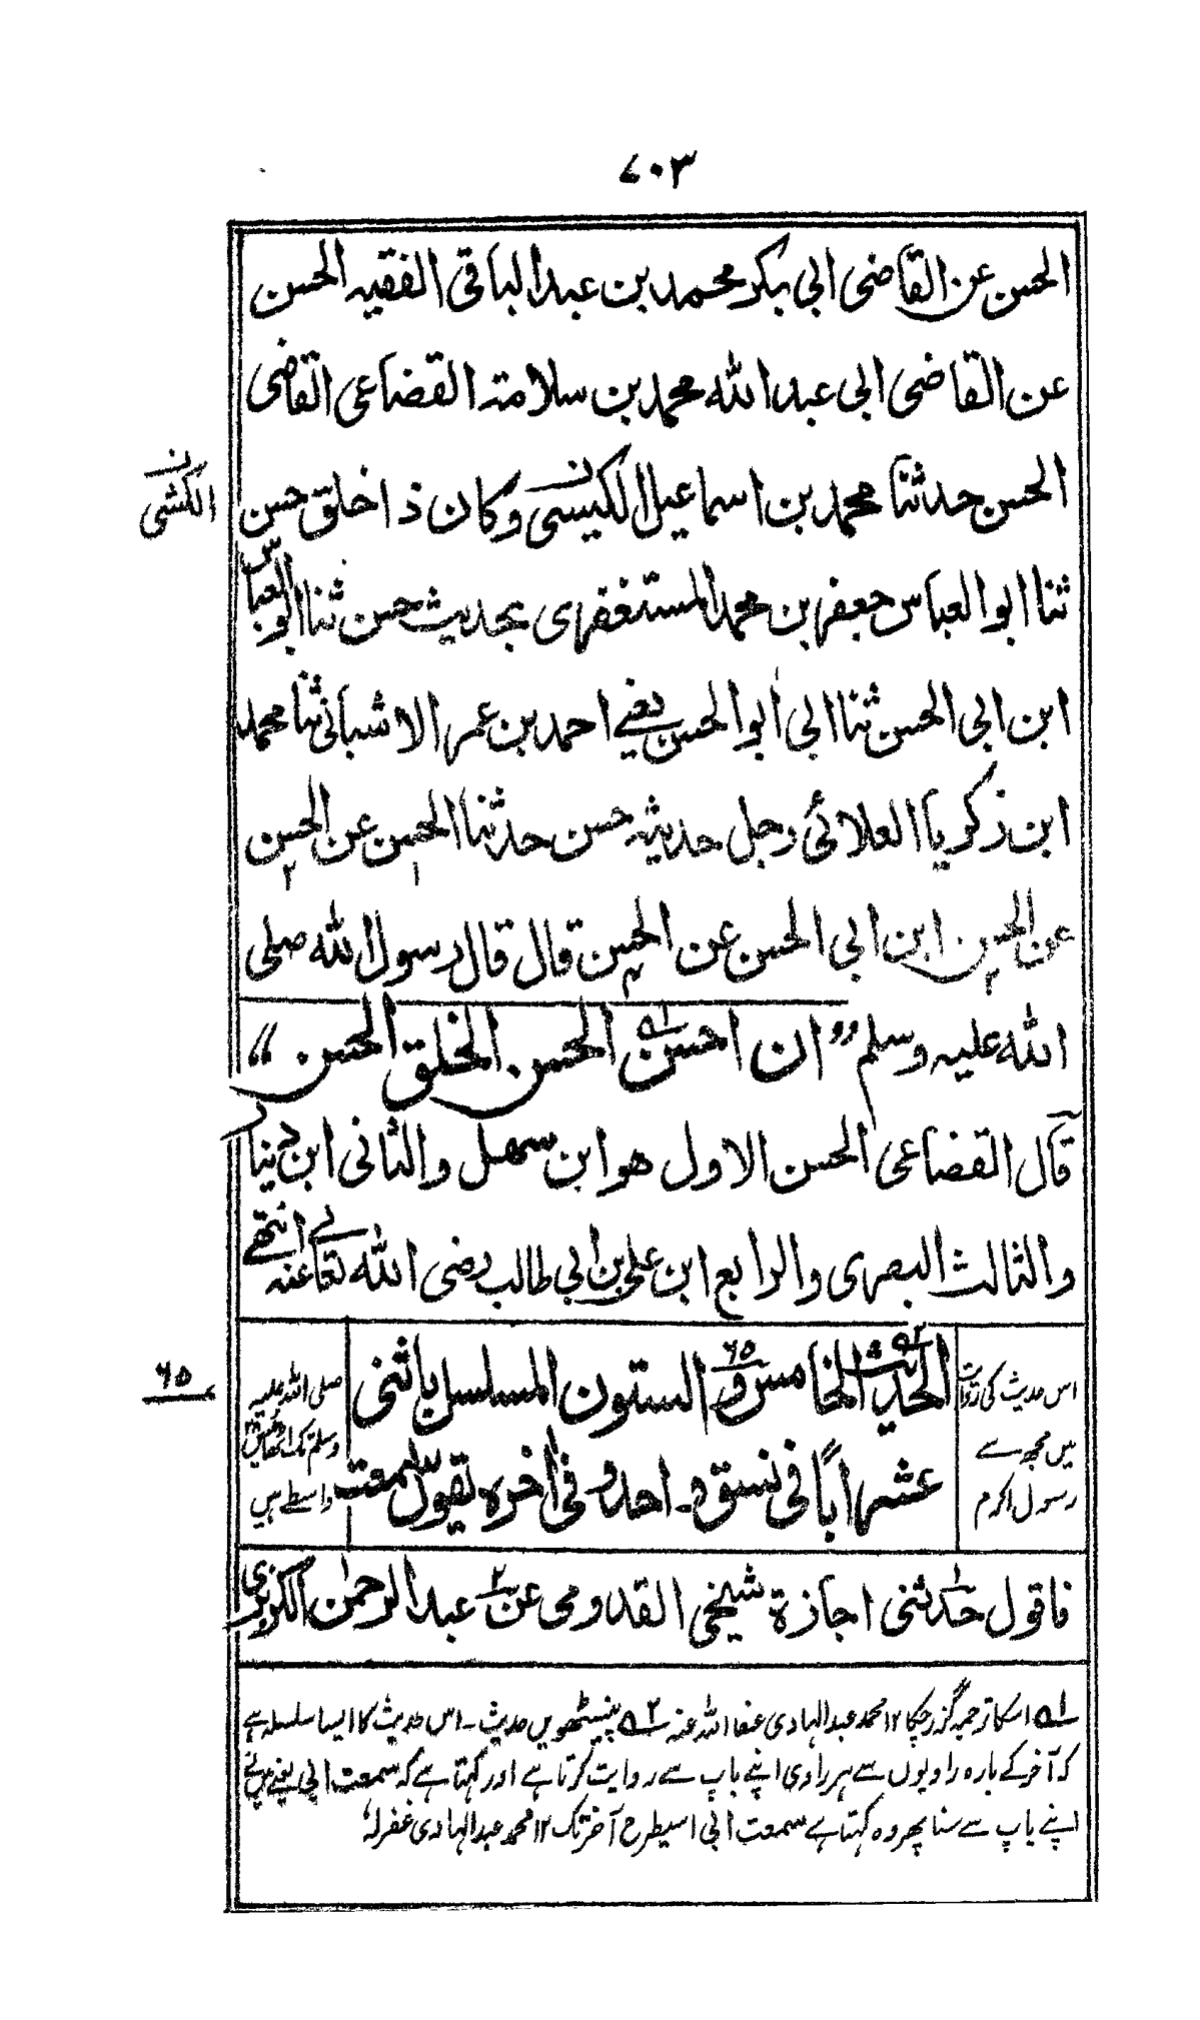 ۷۰۳
الحسن عن القاضی ابی بکر محمد بن عبد الباقی الفقیہ الحسن
عن القاضی ابی عبد اللہ محمد بن سلامتہ القضاعی القاضی
الحسن حدثنا محمد بن اسماعیل الکیسی وکان ذا خلق حسن
الکشی
ثنا ابو العباس جعفر بن محمد المستغفری بحدیث حسن ثنا ابو العباس
ابن ابی الحسن ثنا ابی ابو الحسن یعنے احمد بن عمر الاشبانی ثنا محمد
ابن زکریا العلائی رجل حدیثہ حسن حدثنا الحسن۱ عن الحسن۲
عن الحسن۳ ابن ابی الحسن عن الحسن۴ قال قال رسول اللہ صلی
اللہ علیہ وسلم "ان احسن۱ الحسن الخلق الحسن"
قال القضاعی الحسن الاول ھو ابن سھل والثانی ابن دینار
والثالث البصری والرابع ابن علی بن ابی طالب رضی اللہ تعالی عنہ انتھے
۶۵
الحدیث۲ الخامس و۶۵ الستون المسلسل باثنی
عشر اباً فی نسق واحد و فی اخرہ یقول سمعت
اس حدیث کی
میں مجھ سے
رسول اکرم
صلی اللہ علیہ
وسلم تک
واسطے ہیں
فاقول حدثنی۱ اجازة شیخی القدومی عن۲ عبد الرحمٰن الکزبری
۱ اسکا ترجمہ گزر چکا ۱۲ محمد عبد الہادی عفا اللہ عنہ ۲ پینسٹھویں حدیث ۔ اس حدیث کا ایسا سلسلہ ہے
کہ آخر کے بارہ راویوں سے ہر راوی اپنے باپ سے روایت کرتا ہے اور کہتا ہے کہ سمعت ابی یعنے میں نے
اپنے باپ سے سنا پھر وہ کہتا ہے سمعت ابی اسیطرح آخر تک ۱۲ محمد عبد الہادی غفرلہ